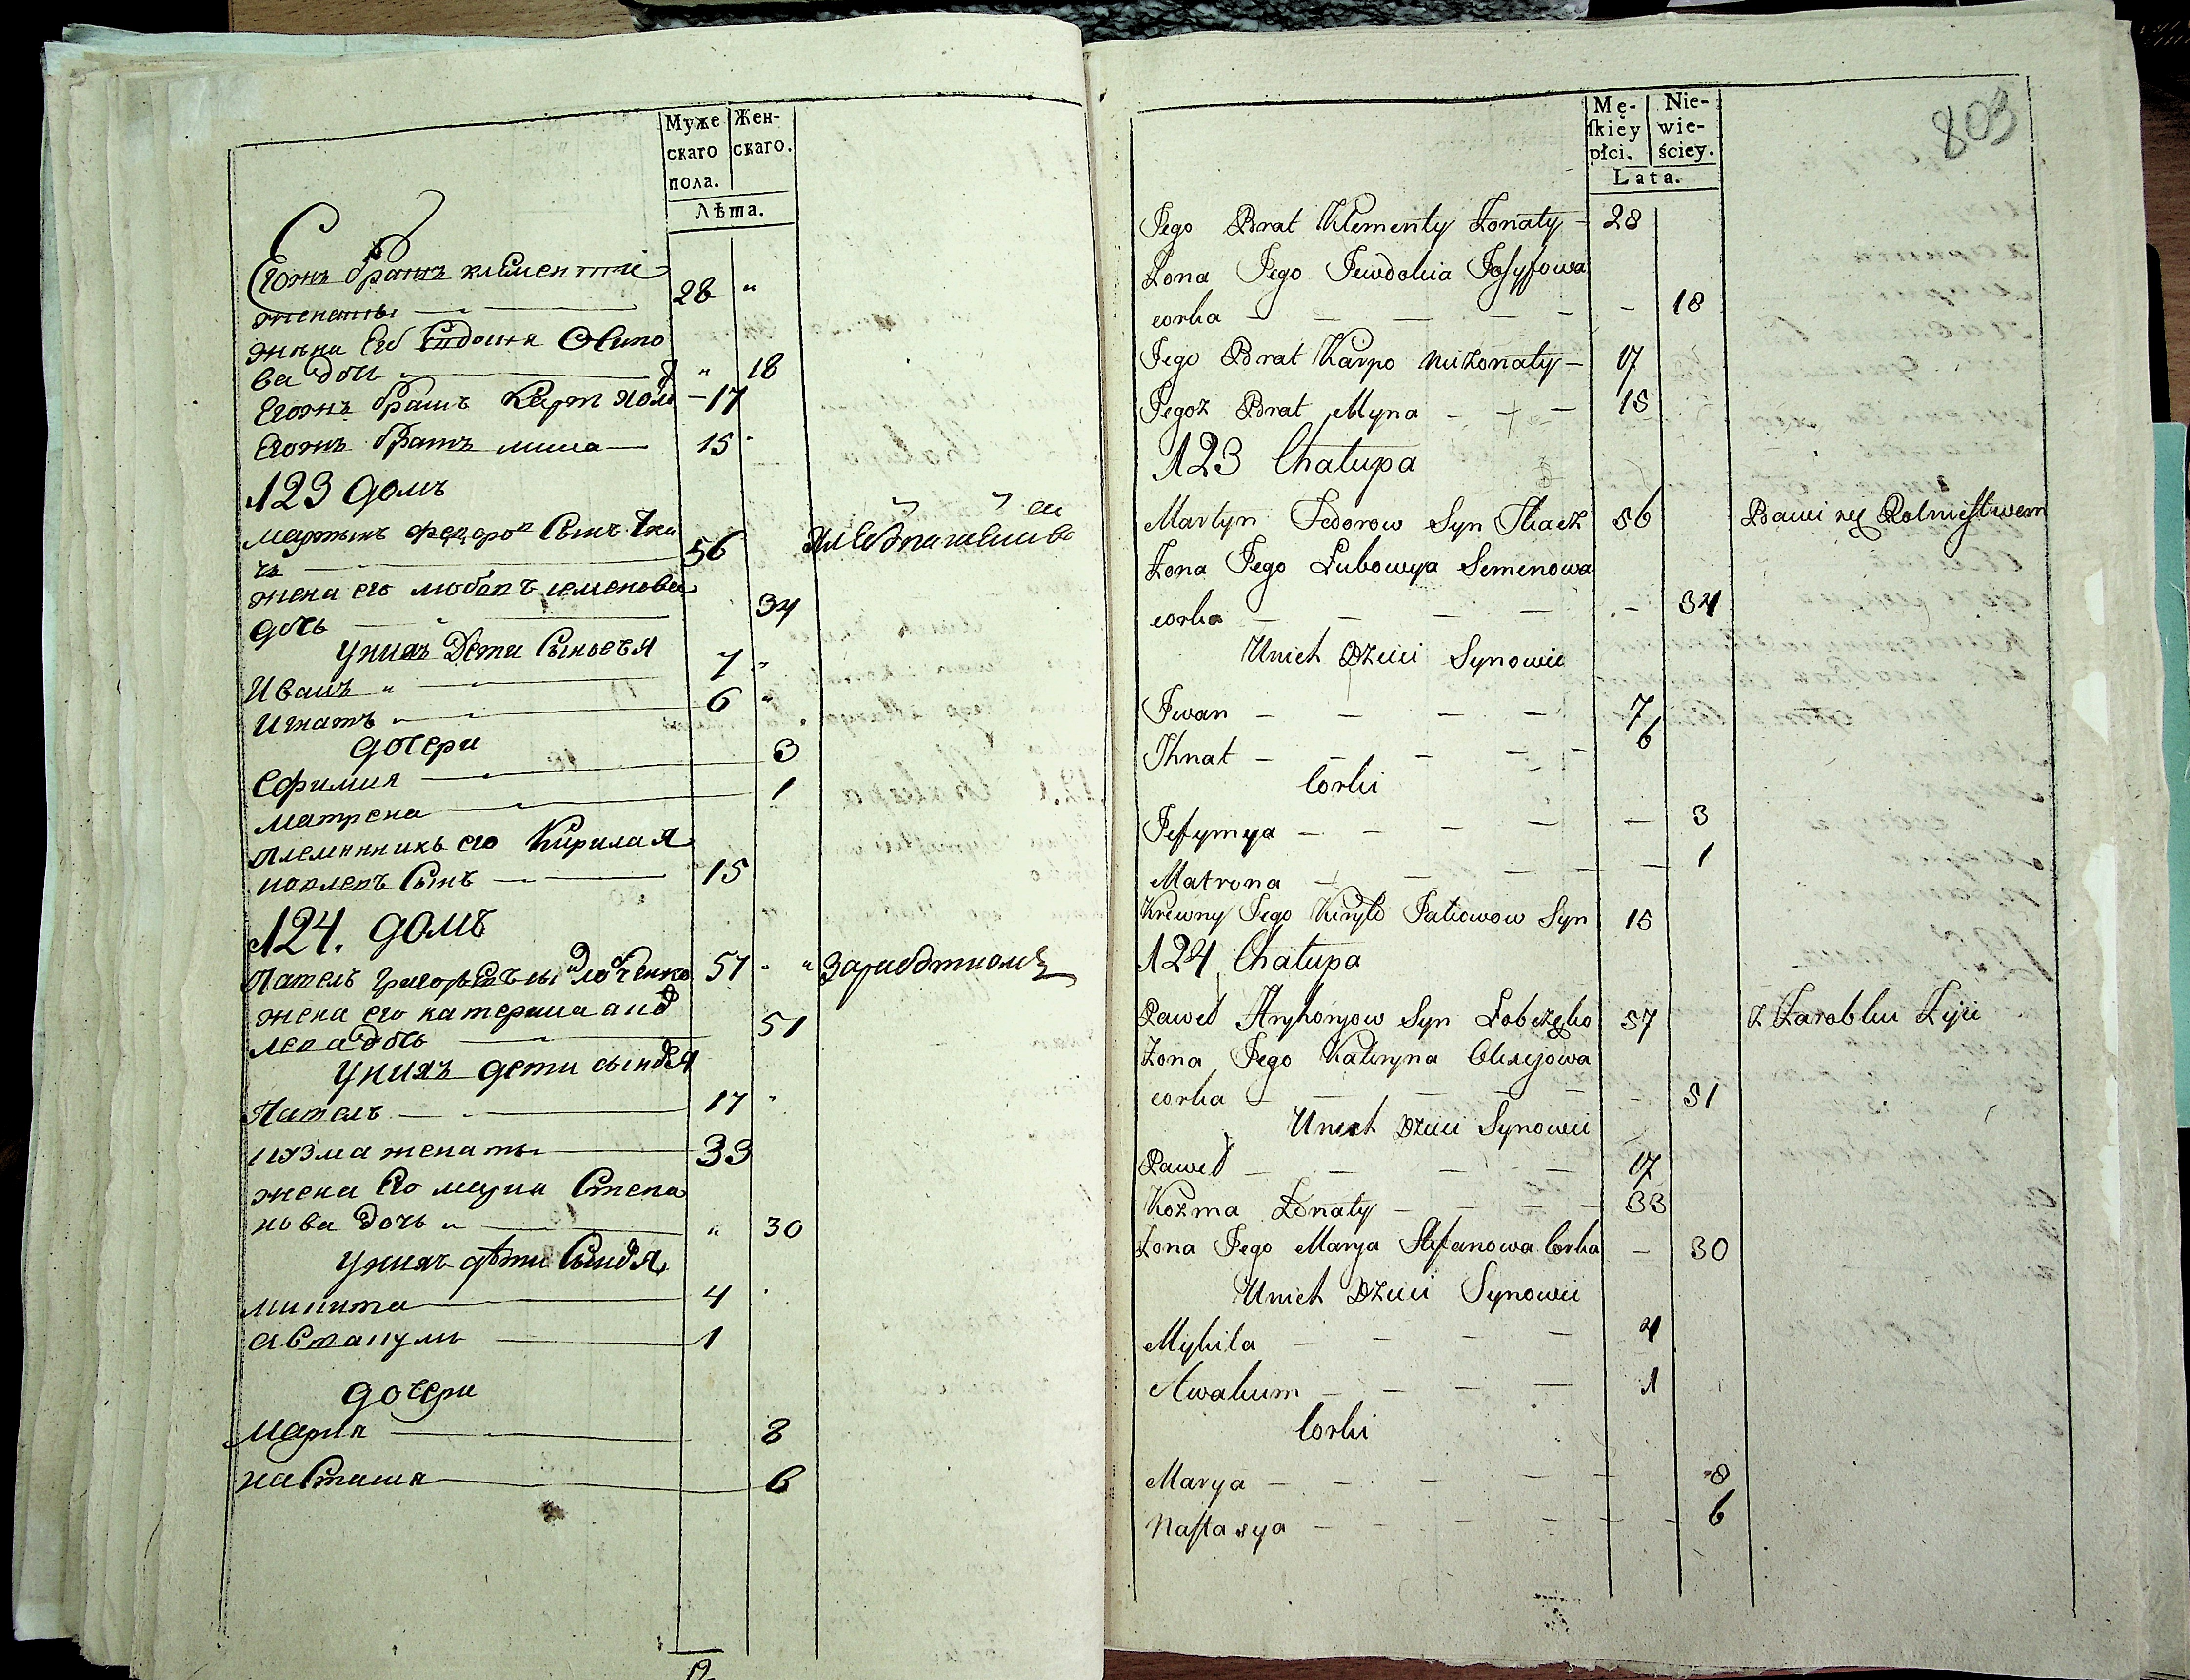 Муже Жен-
скаго скаго.
пола.
Лѣта.
Егожъ братъ клементій
женатъ 28 "
жена Его Евдокия Осипо
ва дочь " 18
Егожъ братъ Карп холо 17
Егожъ братъ мина 15
123 домъ
мартынъ федоров Сынъ Тка
чъ 56
жена его любовъ семенова
дочь 34
Унихъ Дети Сыновья
Иванъ " 7 "
Игнатъ 6 "
дочери
Ефимия 3
матрена 1
племянникъ его Кирила Я
ковлевъ Сынъ 15
124. домъ
Павелъ григорьевъ сы лобченко 57 " " Заработкомъ
жена его катерина
дочь 51
Унихъ дети сыновья
Павелъ 17 "
кузма женатъ 33
жена Его марья Степа
нова дочь " " 30
Унихъ дѣти Сыновья
микита 4
авакумъ 1
дочери
Марья 8
настасия 6
803
Mę- Nie-
ſkiey wie-
płci. ściey.
Lata.
Jego Brat Klementy Żonaty — 28
Żona Jego Jewdokia Josyfowa
corka — — — — — — 18
Jego Brat Karpo nieżonaty — 17
Jegoż Brat Myna — — — 15
123 Chałupa
Martyn Fedorow Syn Tkacz 56 Bawi się Rolnictwem
Żona Jego Lubowya Semenowa
corka — — — — — 34
Unich Dzieci Synowie
Jwan — — — — 7
Jhnat — — — — 6
Corki
Jefymya — — — — — 3
Matrona — — — — — 1
Krewny Jego Kiryło Jakowow Syn 15
124 Chałupa
Paweł Hryhoryow Syn Łobczęko 57 z Zarobku Żyie
Żona Jego Kateryna Olexijowa
corka — — — — — 51
Unich Dzieci Synowie
Paweł — — — — 17
Kozma Żonaty — — — — 33
Żona Jego Marya Stefanowa Corka — 30
Unich Dzieci Synowie
Mykita — — — — 4
Awakum — — — — 1
Corki
Marya — — — — — 8
Naſtasya — — — — — — 6